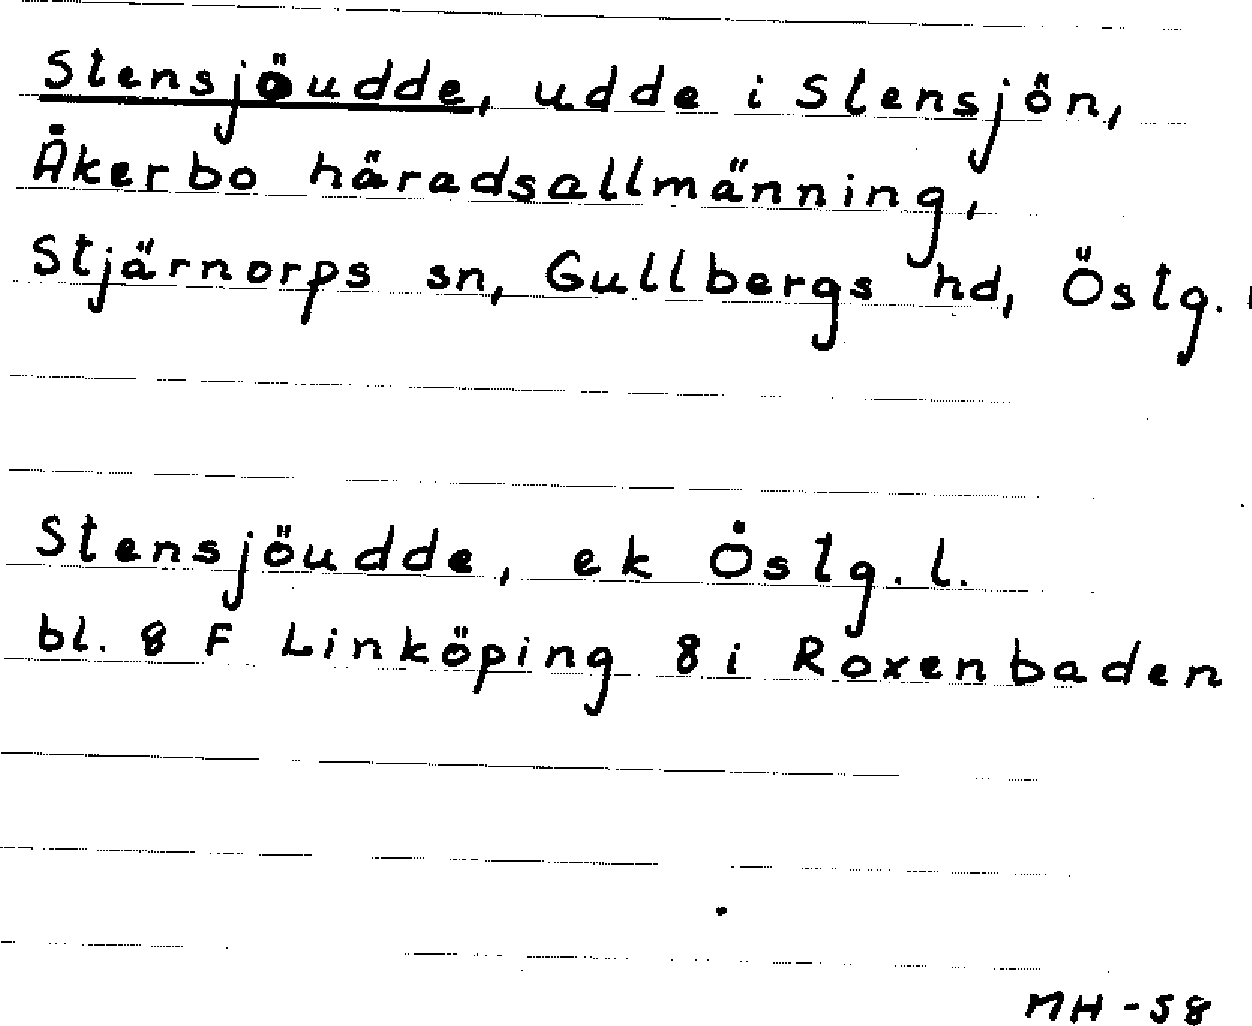 Stensjöudde, udde i Stensjön,
Åkerbo häradsallmänning,
Stjärnorps sn, Gullbergs hd, Östg. l
Stensjöudde, ek Östg. l.
bl. 8 F Linköping 8 i Roxenbaden
MH - 58